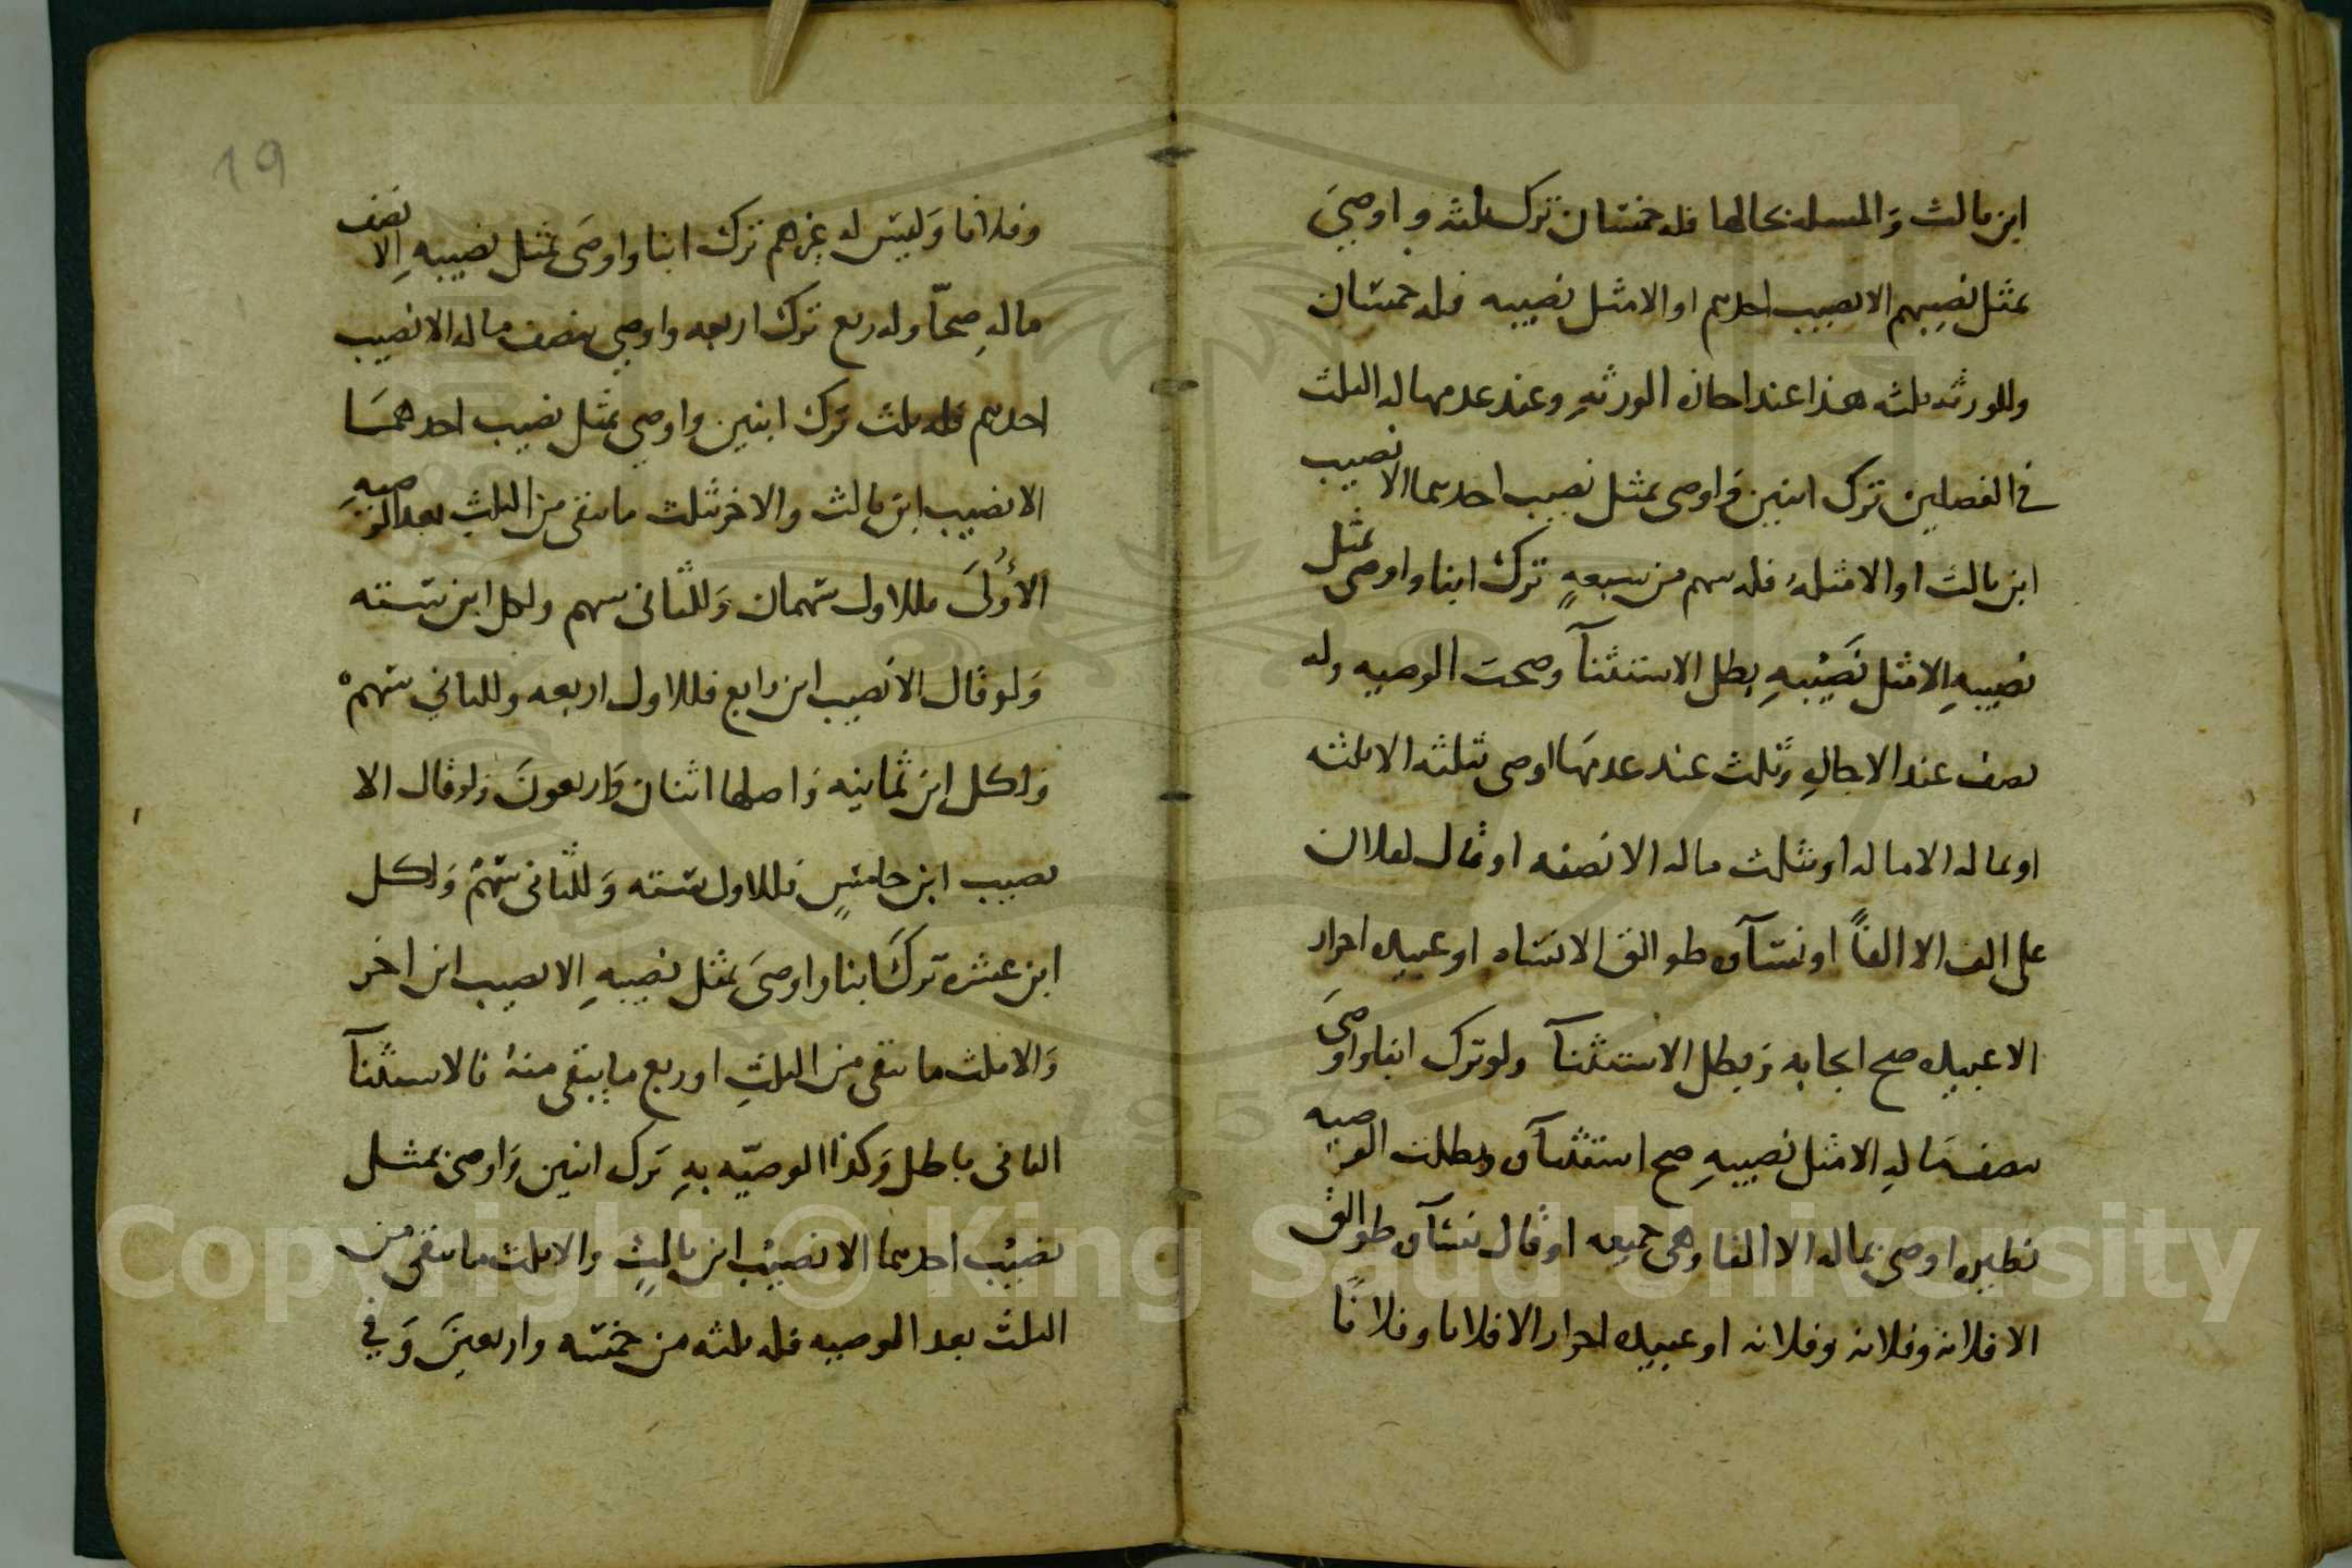 ابن ثالث وَالمسله بحالها فله خمسان ترك ثلثه و اوصىَ
بمثل نصيبهم الا نصيب احدهم او الا مثل نصيبه فله خمسان
وللورثه ثلثه هذا عند اجازه الورثهِ وعند عدمها له الثلث
فى الفصلين ترك ابنين وَ اوصى بمثل نصيب احدهما الا نصيب
ابن ثالث او الا مثلهُ فله سهم من سبعهٍ ترك ابنا و اوصى بمثل
نصيبهِ الا مثل نَصيْبهِ بطل الاستثنآ وصحت الوصيه وله
نصف عند الاجازهِ وَثلث عند عدمهَا اوصى بثلثه الا ثلثه
او بماله الا ماله او بثلث ماله الا نصفه او قال لفلان
على الف الا الفاً او نسآوه طوالق الا نساه او عبيده احرار
الا عبيده صح ايجابه وَبطل الاستثنآ ولو ترك ابنا واوصىَ
بنصف مَالهِ الا مثل نصيبهِ صح استثنآوه وبطلت الوصيه
نظيره اوصى بماله الا الفا وهى جميعه او قال نسآوه طوالق
الا فلانه وفلانه وفلانه او عبيده احرار الا فلانا وفلانًا
وفلانا وَليسَ له غيرهم ترك ابنا واوصىَ بمثل نصيبهِ اِلا نصف
مالهِ صحّا وله ربع ترك اربعه واوصى بنصف ماله الا نصيب
احدهم فله ثلث ترك ابنين واوصى بمثل نصيب احدهمَا
الا نصيب ابن ثالث والاخر بثلث ما يبقى من الثلث بعد الوصيهِ
الأُولَى فللاول سَهمان وَللثانى سهم ولكل ابن سته
وَلو قال الا نصيب ابن رابع فللاول اربعه وللثانى سهم
وَلكل ابن ثمانيه وَاصلها اثنان وَاربعونَ وَلو قال الا
نصيب ابن خامسٍ فللاول سته وَللثانى سَهمٌ وَلكل
ابن عشره تركَ ابنا واوصىَ بمثل نصيبهِ الا نصيب ابن اخر
وَالا ثلث ما يبقى من الثلثِ او ربع ما يبقى منهُ فالاستثنآ
الثانى باطل وَكذا الوصيّه بهِ تَرك ابنين وَاوصى بمثل
نصيْب احدهما الا نصيْب ابن ثالثٍ والا ثلث ما يبقى من
الثلث بعد الوصيه فله ثلثه من خمسَه واربعينَ وَفى
19
Copyright © King Saud University